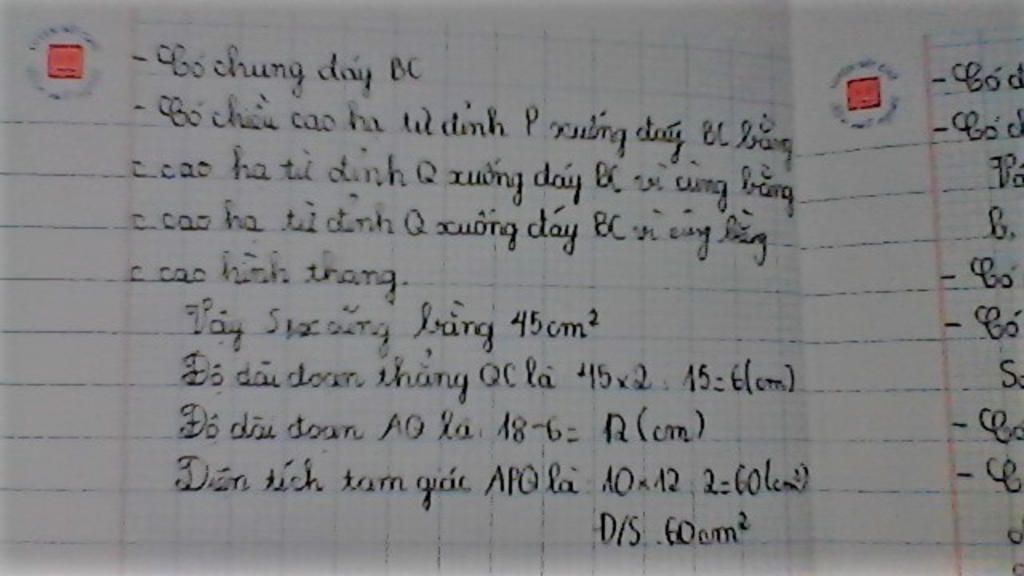 - Có chung đáy BC
- Có chiều cao hạ từ đỉnh P xuống đáy BC bằng
c.cao hạ từ đỉnh Q xuống đáy BC vì cùng bằng
c.cao hạ từ đỉnh Q xuống đáy BC vì cùng bằng
c.cao hình thang.
Vậy cũng bằng 45cm²
Độ dài đoạn thẳng QC là 45×2:15=6(cm)
Độ dài đoạn AQ là: 18-6= 12(cm)
Diện tích tam giác APQ là 10×12:2=60(cm²)
Đ/S: 60cm²
- Có
- Có
- Có